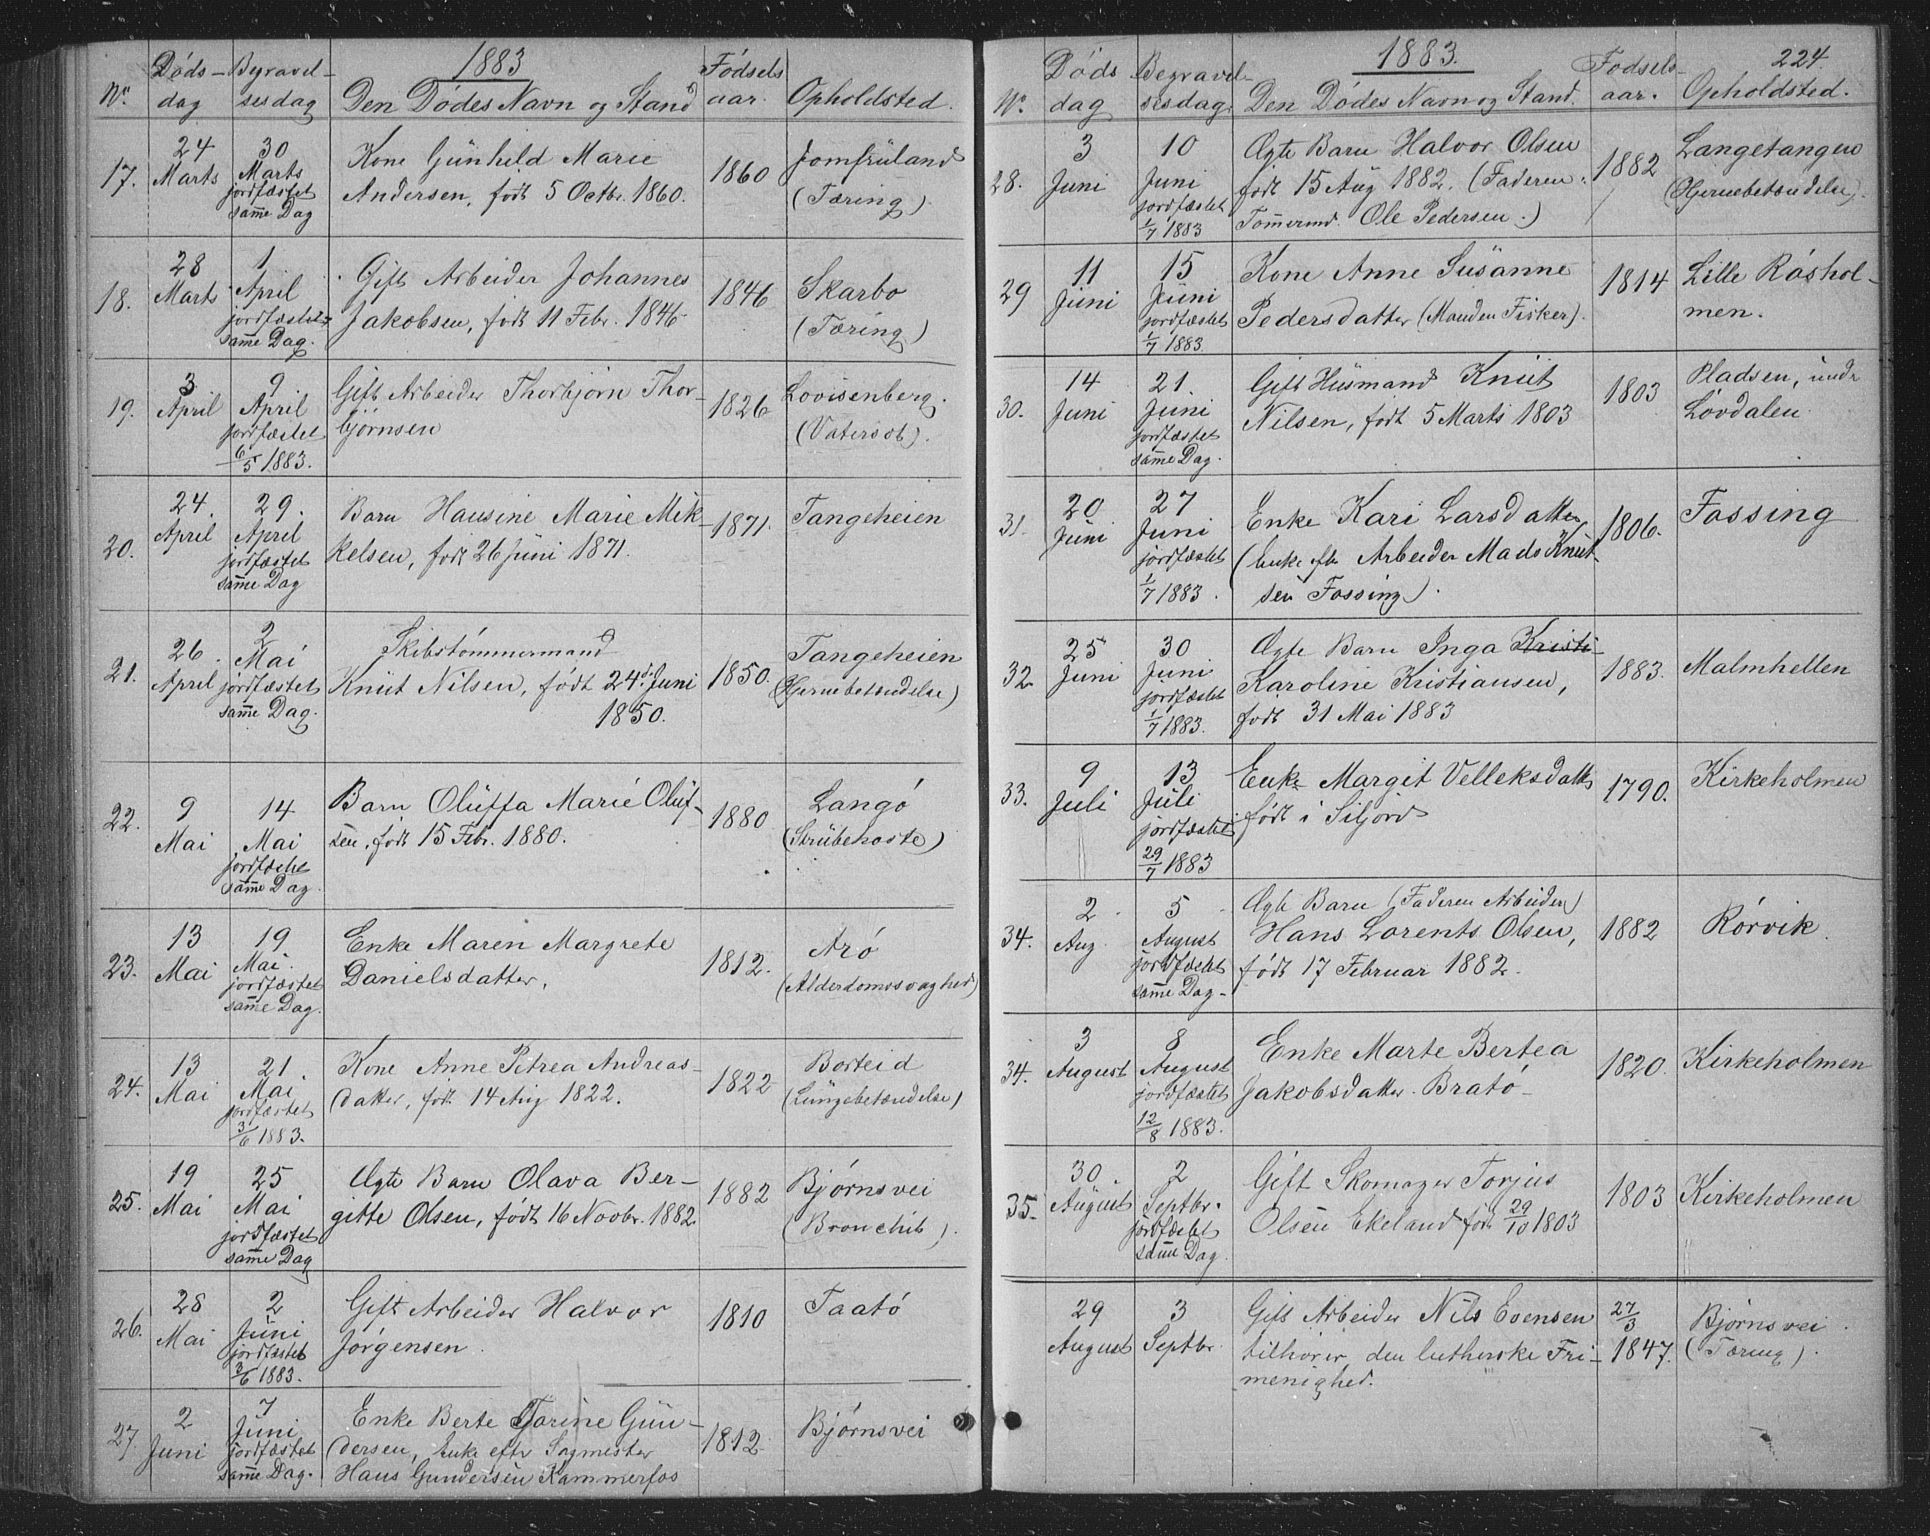 1883
Døds- Begravel- Fødsels
No. dag sesdag Den Dødes Navn og Stand aar. Opholdsted.
17. 24 Marts 30 Marts jordfæstet samme Dag
Kone Günhild Marie
Andersen, født 5 Octbr. 1860.
1860
Jomfrüland
(Tæring)
18. 28 Marts 1 April jordfæstet samme Dag.
Gift Arbeider Johannes
Jakobsen, født 11 Febr. 1846
1846
Skarbo
(Tæring)
19. 3 April 9. April jordfæstet 6/5 1883.
Gift Arbeider Thorbjørn Thor-
bjørnsen
1826
Lovisenberg.
(Vatersot).
20. 24. April 29. April jordfæstet samme Dag
Barn Hansine Marie Mik-
kelsen, født 26 Jüni 1871.
1871.
Tangeheien
21. 26. April 2 Mai jordfæstet samme Dag.
Skibstømmermand
Knüt Nilsen, født 24d. Juni
1850.
1850.
Tangeheien
(Hjernebetændelse)
22. 9 Mai 14 Mai jordfæstet samme Dag.
Barn Olüffa Marie Olüf-
sen, født 15 Febr. 1880.
1880
Langø
(Strübehoste)
23. 13 Mai 19 Mai. jordfæstet samme Dag.
Enke Maren Margrete
Danielsdatter,
1812.
Arø
(Alderdomssvaghed)
24. 13 Mai 21 Mai jordfæstet 3/6 1883.
Kone Anne Petrea Andreas-
datter, født 14 Aug 1822.
1822
Borteid
(Lüngebetændelse)
25. 19 Mai 25 Mai jordfæstet samme Dag
Ægte Barn Olava Ber-
gitte Olsen, født 16 Novbr. 1882.
1882
Bjørnsvei
(Bronchit).
26. 28 Mai 2 Jüni jordfæstet 3/6 1883.
Gift Arbeider Halvor
Jørgensen.
1810
Taatø
27. 2 Juni 7 Juni jordfæstet samme Dag.
Enke Berte Tarine Gün-
dersen, Enke efter Sagmester
Hans Gundersen Kammerfos
1812.
Bjørnsvei
1883. 224.
Døds Begravel- Fødsels-
No. dag sesdag Den Dødes Navn og Stand. aar. Opholdsted.
28. 3 Juni 10 Juni jordfæstet 1/7 1883
Ægte Barn Halvor Olsen
født 15 Aug 1882. (Faderen:
Tømermd. Ole Pedersen.)
1882
Langetangen
(Hjernebetændelse).
29 11 Jüni 15 Jüni jordfæstet 1/7 1883.
Kone Anne Süsanne
Pedersdatter (Manden Fisker).
1814
Lille Røshol-
men.
30. 14 Juni 21. Juni jordfæstet samme Dag.
Gift Hüsmand Knüt
Nilsen, født 5 Marts 1803
1803
Pladsen, undr
Løvdalen.
31. 20 Juni 27 Juni jordfæstet 1/7 1883.
Enke Kari Larsdatter
(Enke eftr Arbeider Mads Knüt-
sen Fossing).
1806.
Fossing
32. 25 Juni 30 Juni jordfæstet 1/7 1883.
Ægte Barn Inga Kristi-
Karoline Kristiansen,
født 31 Mai 1883
1883.
Malmhellen
33. 9 Juli 13 Jüli jordfæstet 29/7 1883
Enke Margit Velleksdatter
født i Siljord
1790.
Kirkeholmen
34. 2 Aug 5 August jordfæstet samme Dag-
Ægte Barn (Faderen Arbeider)
Hans Lorents Olsen,
født 17 Februar 1882.
1882
Rørvik.
34. 3 August 8 August jordfæstet 12/8 1883.
Enke Marte Bertea
Jakobsdatter. Bratø-
1820.
Kirkeholmen
35. 30. Augüst 2 Septbr. jordfæstet samme Dag.
Gift Skomager Torjus
Olsen Ekeland født 29/10 1803
1803
Kirkeholmen
29 August 3 Septbr.
Gift Arbeider Nils Evensen
tilhører den lutherske Fri-
menighed.
27/3
1847.
Bjørnsvei.
(Tæring).